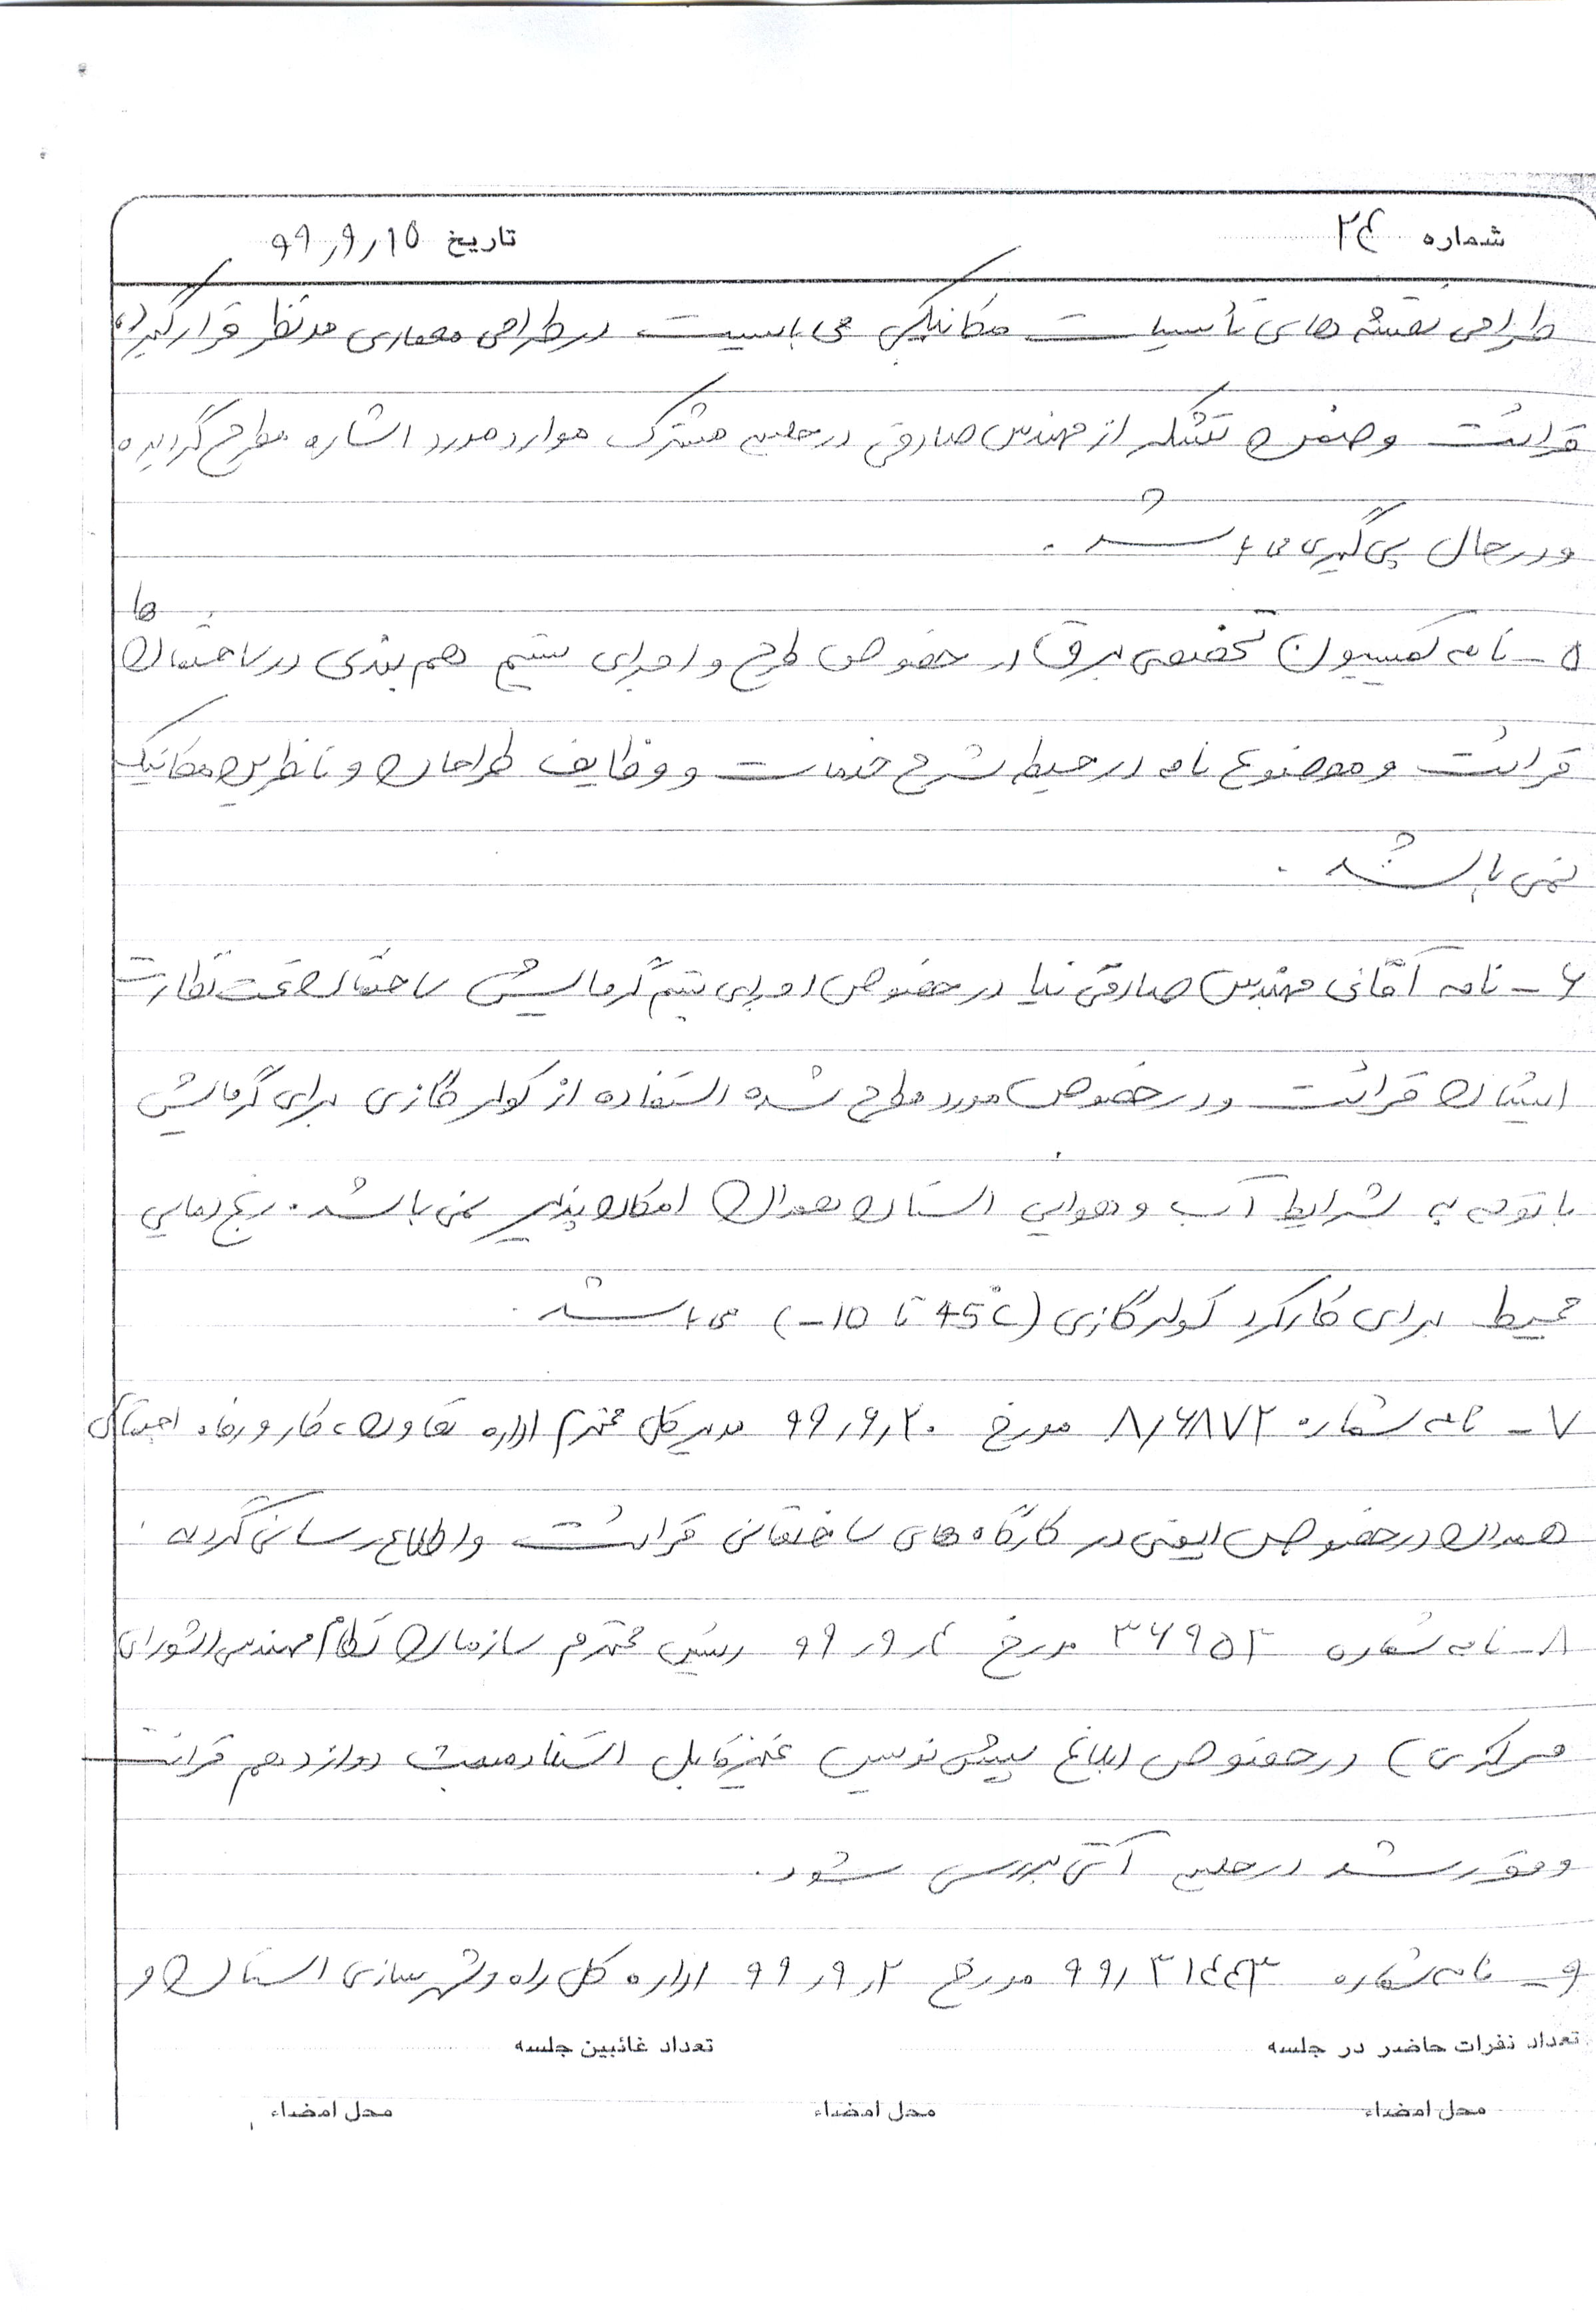 شماره ۲۴
تاریخ ۹۹/۹/۱۵
طراحی نقشه های تأسیسات مکانیکی می بایست در طراحی معماری مدنظر قرار گیرد)
قرائت و ضمن تشکر از مهندس صادقی در جلسه مشترک موارد مورد اشاره مطرح گردیده
و در حال پی گیری می باشد .
۵ - نامه کمیسیون تخصصی برق در خصوص طرح و اجرای سیستم هم بندی در ساختمان ها
قرائت و موضوع نامه در حیطه شرح خدمات و وظایف طراحان و ناظرین مکانیک
نمی باشد .
۶ - نامه آقای مهندس صادقی نیا در خصوص اجرای سیستم گرمایش ساختمان تحت نظارت
ایشان قرائت و در خصوص مورد مطرح شده استفاده از کولر گازی برای گرمایش
با توجه به شرایط آب و هوایی استان همدان امکان پذیر نمی باشد . رنج دمایی
محیط برای کارکرد کولر گازی (45°c تا 10-) می باشد .
۷ - نامه شماره ۸/۶۸۷۲ مورخ ۹۹/۶/۲۰ مدیر کل محترم اداره تعاون، کار و رفاه اجتماعی
همدان در خصوص ایمنی در کارگاه های ساختمانی قرائت و اطلاع رسانی گردید .
۸ - نامه شماره ۳۶۹۵۲ مورخ ۹۹/۹/۴ رییس محترم سازمان نظام مهندسی (شورای
مرکزی) در خصوص ابلاغ پیش نویس غیر قابل استناد مبحث دوازدهم قرائت
و مقرر شد در جلسه آتی بررسی شود .
۹ - نامه شماره ۹۹/۳۱۴۴۳ مورخ ۹۹/۹/۲ اداره کل راه و شهرسازی استان و
تعداد نفرات حاضر در جلسه
تعداد غائبین جلسه
محل امضاء
محل امضاء
محل امضاء